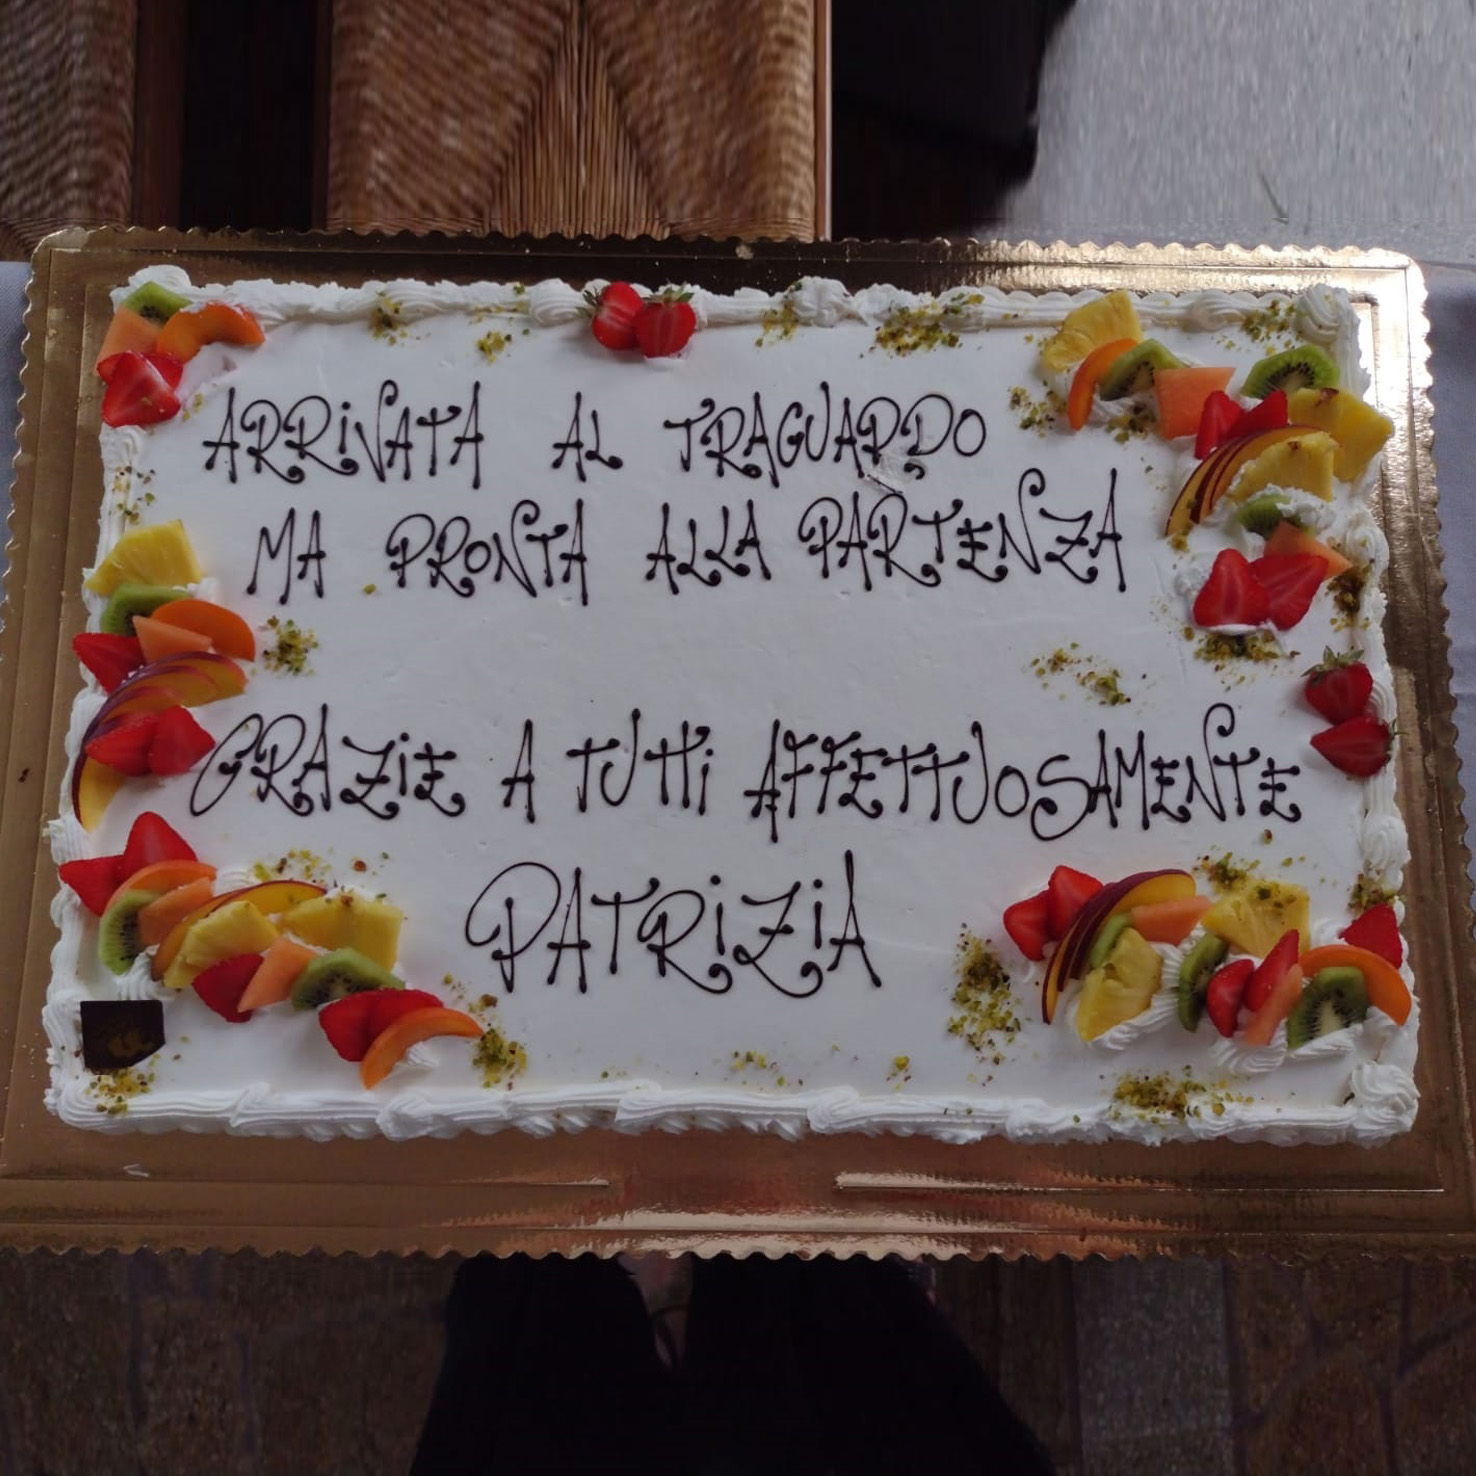 ARRIVATA AL TRAGUARDO
MA PRONTA ALLA PARTENZA
GRAZIE A TUTTI AFFETTUOSAMENTE
PATRIZIA